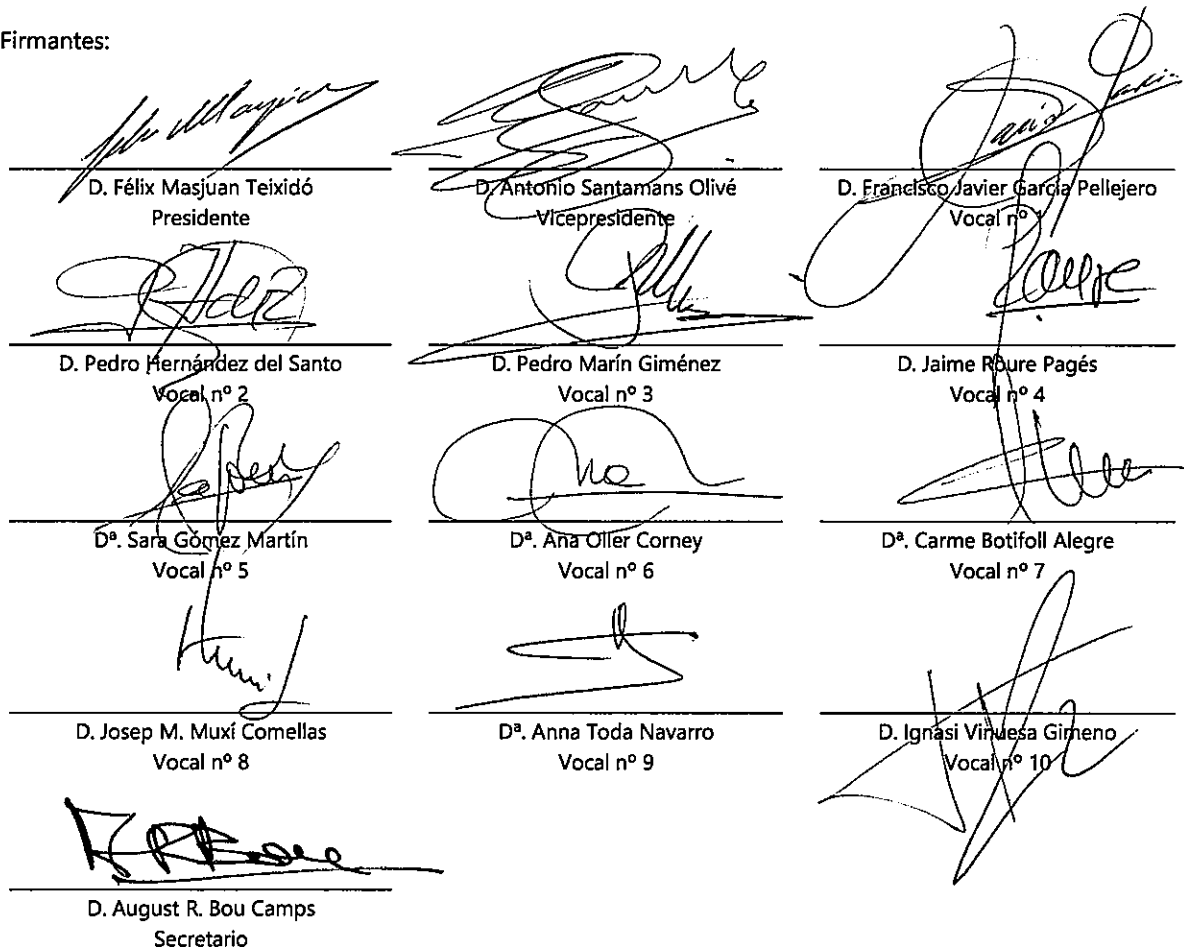 Firmantes:
D. Félix Masjuan Teixidó
Presidente
D. Antonio Santamans Olivé
Vicepresidente
D. Francisco Javier García Pellejero
Vocal nº 1
D. Pedro Hernández del Santo
Vocal nº 2
D. Pedro Marín Giménez
Vocal nº 3
D. Jaime Roure Pagés
Vocal nº 4
Dª. Sara Gómez Martín
Vocal nº 5
Dª. Ana Oller Corney
Vocal nº 6
Dª. Carme Botifoll Alegre
Vocal nº 7
D. Josep M. Muxí Comellas
Vocal nº 8
Dª. Anna Toda Navarro
Vocal nº 9
D. Ignasi Vinuesa Gimeno
Vocal nº 10
D. August R. Bou Camps
Secretario